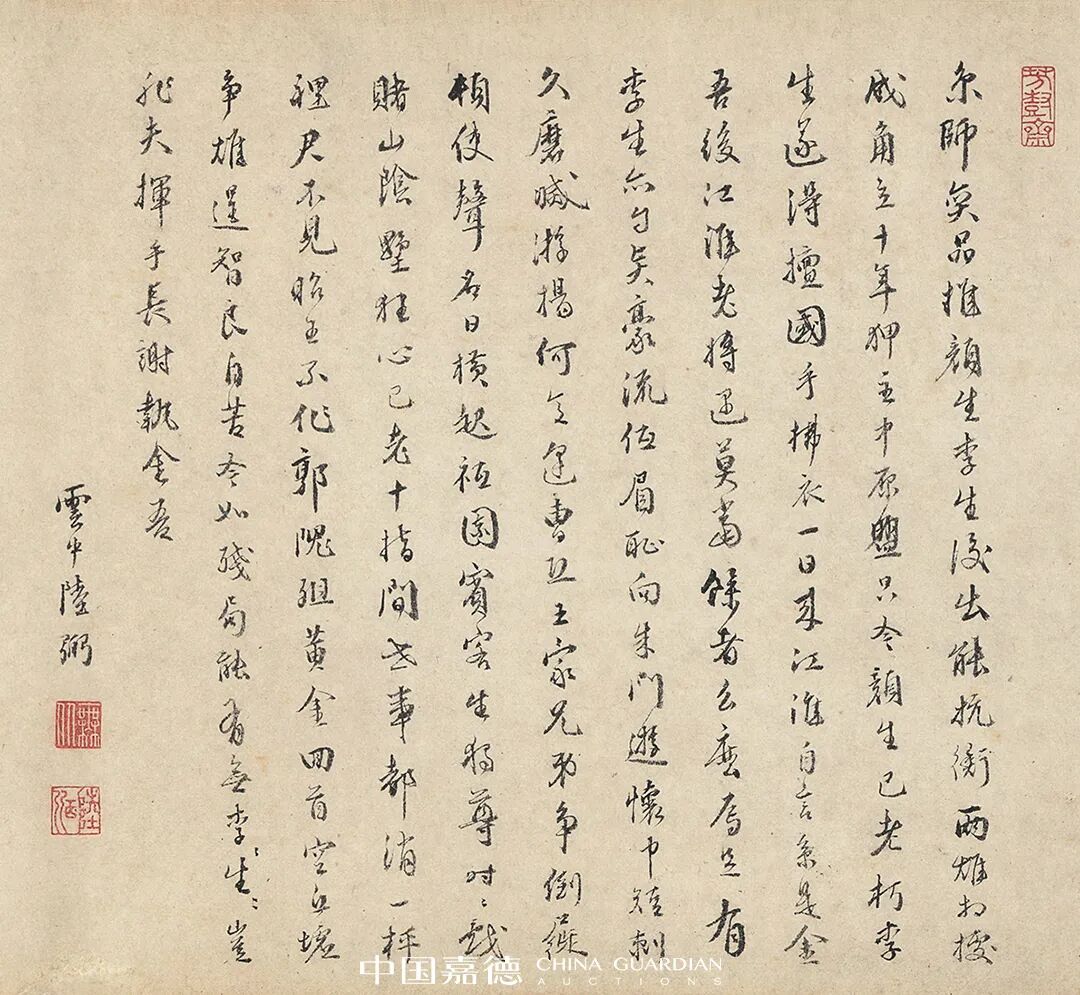 京師奕品推顏生李生後出能抗衡兩雄相
成角立十年狎主中原盟只今顏生已老朽李
生遂得擅國手拂衣一日來江淮自言系是金
吾後江淮老將還莫當餘者么麼焉足有
李生亦自奕豪流低眉恥向朱門遊懷中短刺
久磨滅游揚何意逢曹丘王家兄弟爭倒屣
頓使聲名日橫起祗園賓客生獨尊時〻戲
賭山陰墅狂心已老十指間世事都消一枰
裡君不見昭王不作郭隗殂黃金回首空丘墟
爭雄逞智良自苦今如殘局能有無李〻生〻豈
非夫揮手長謝執金吾
雲中陸弼
陸弼
中国嘉德 CHINA GUARDIAN
AUCTIONS